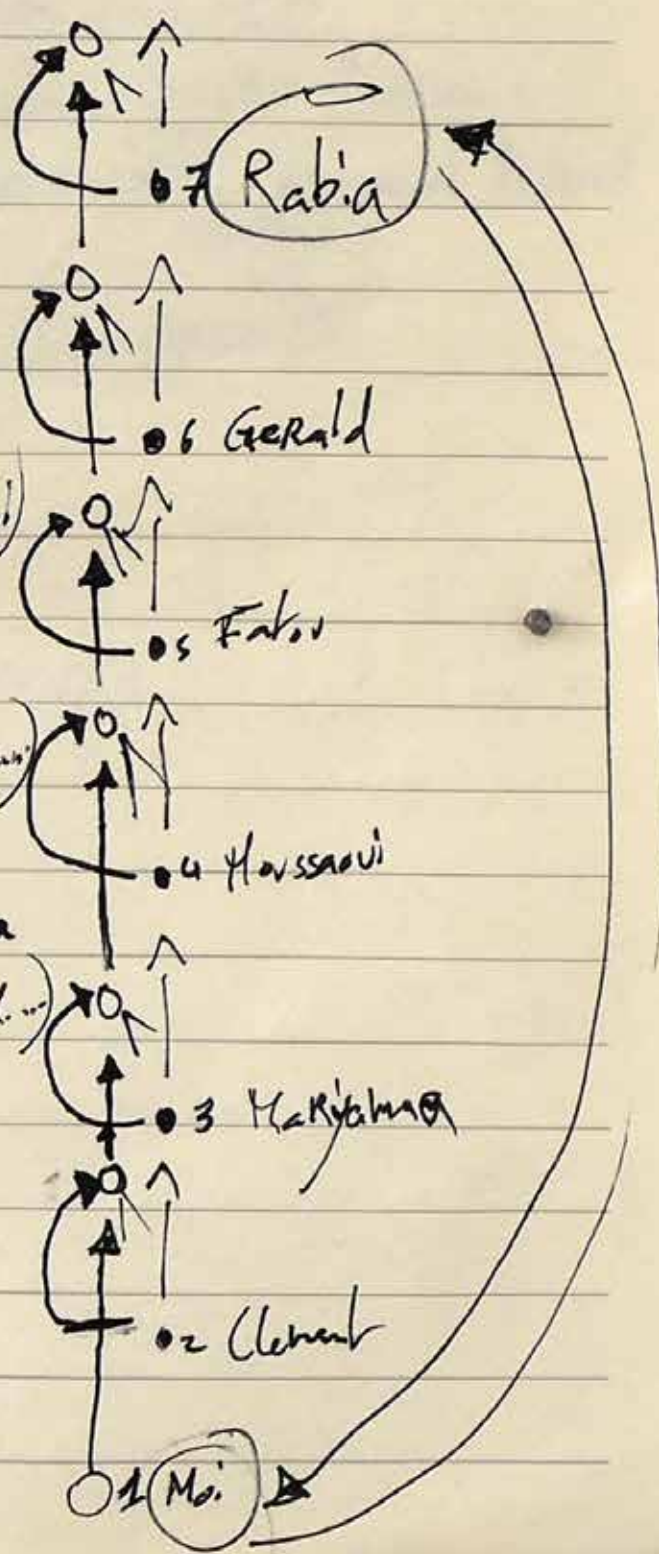 7 Rabia
6 Gerald
5 Fatou
4 Moussaoui
3
2 Clement
1 Moi